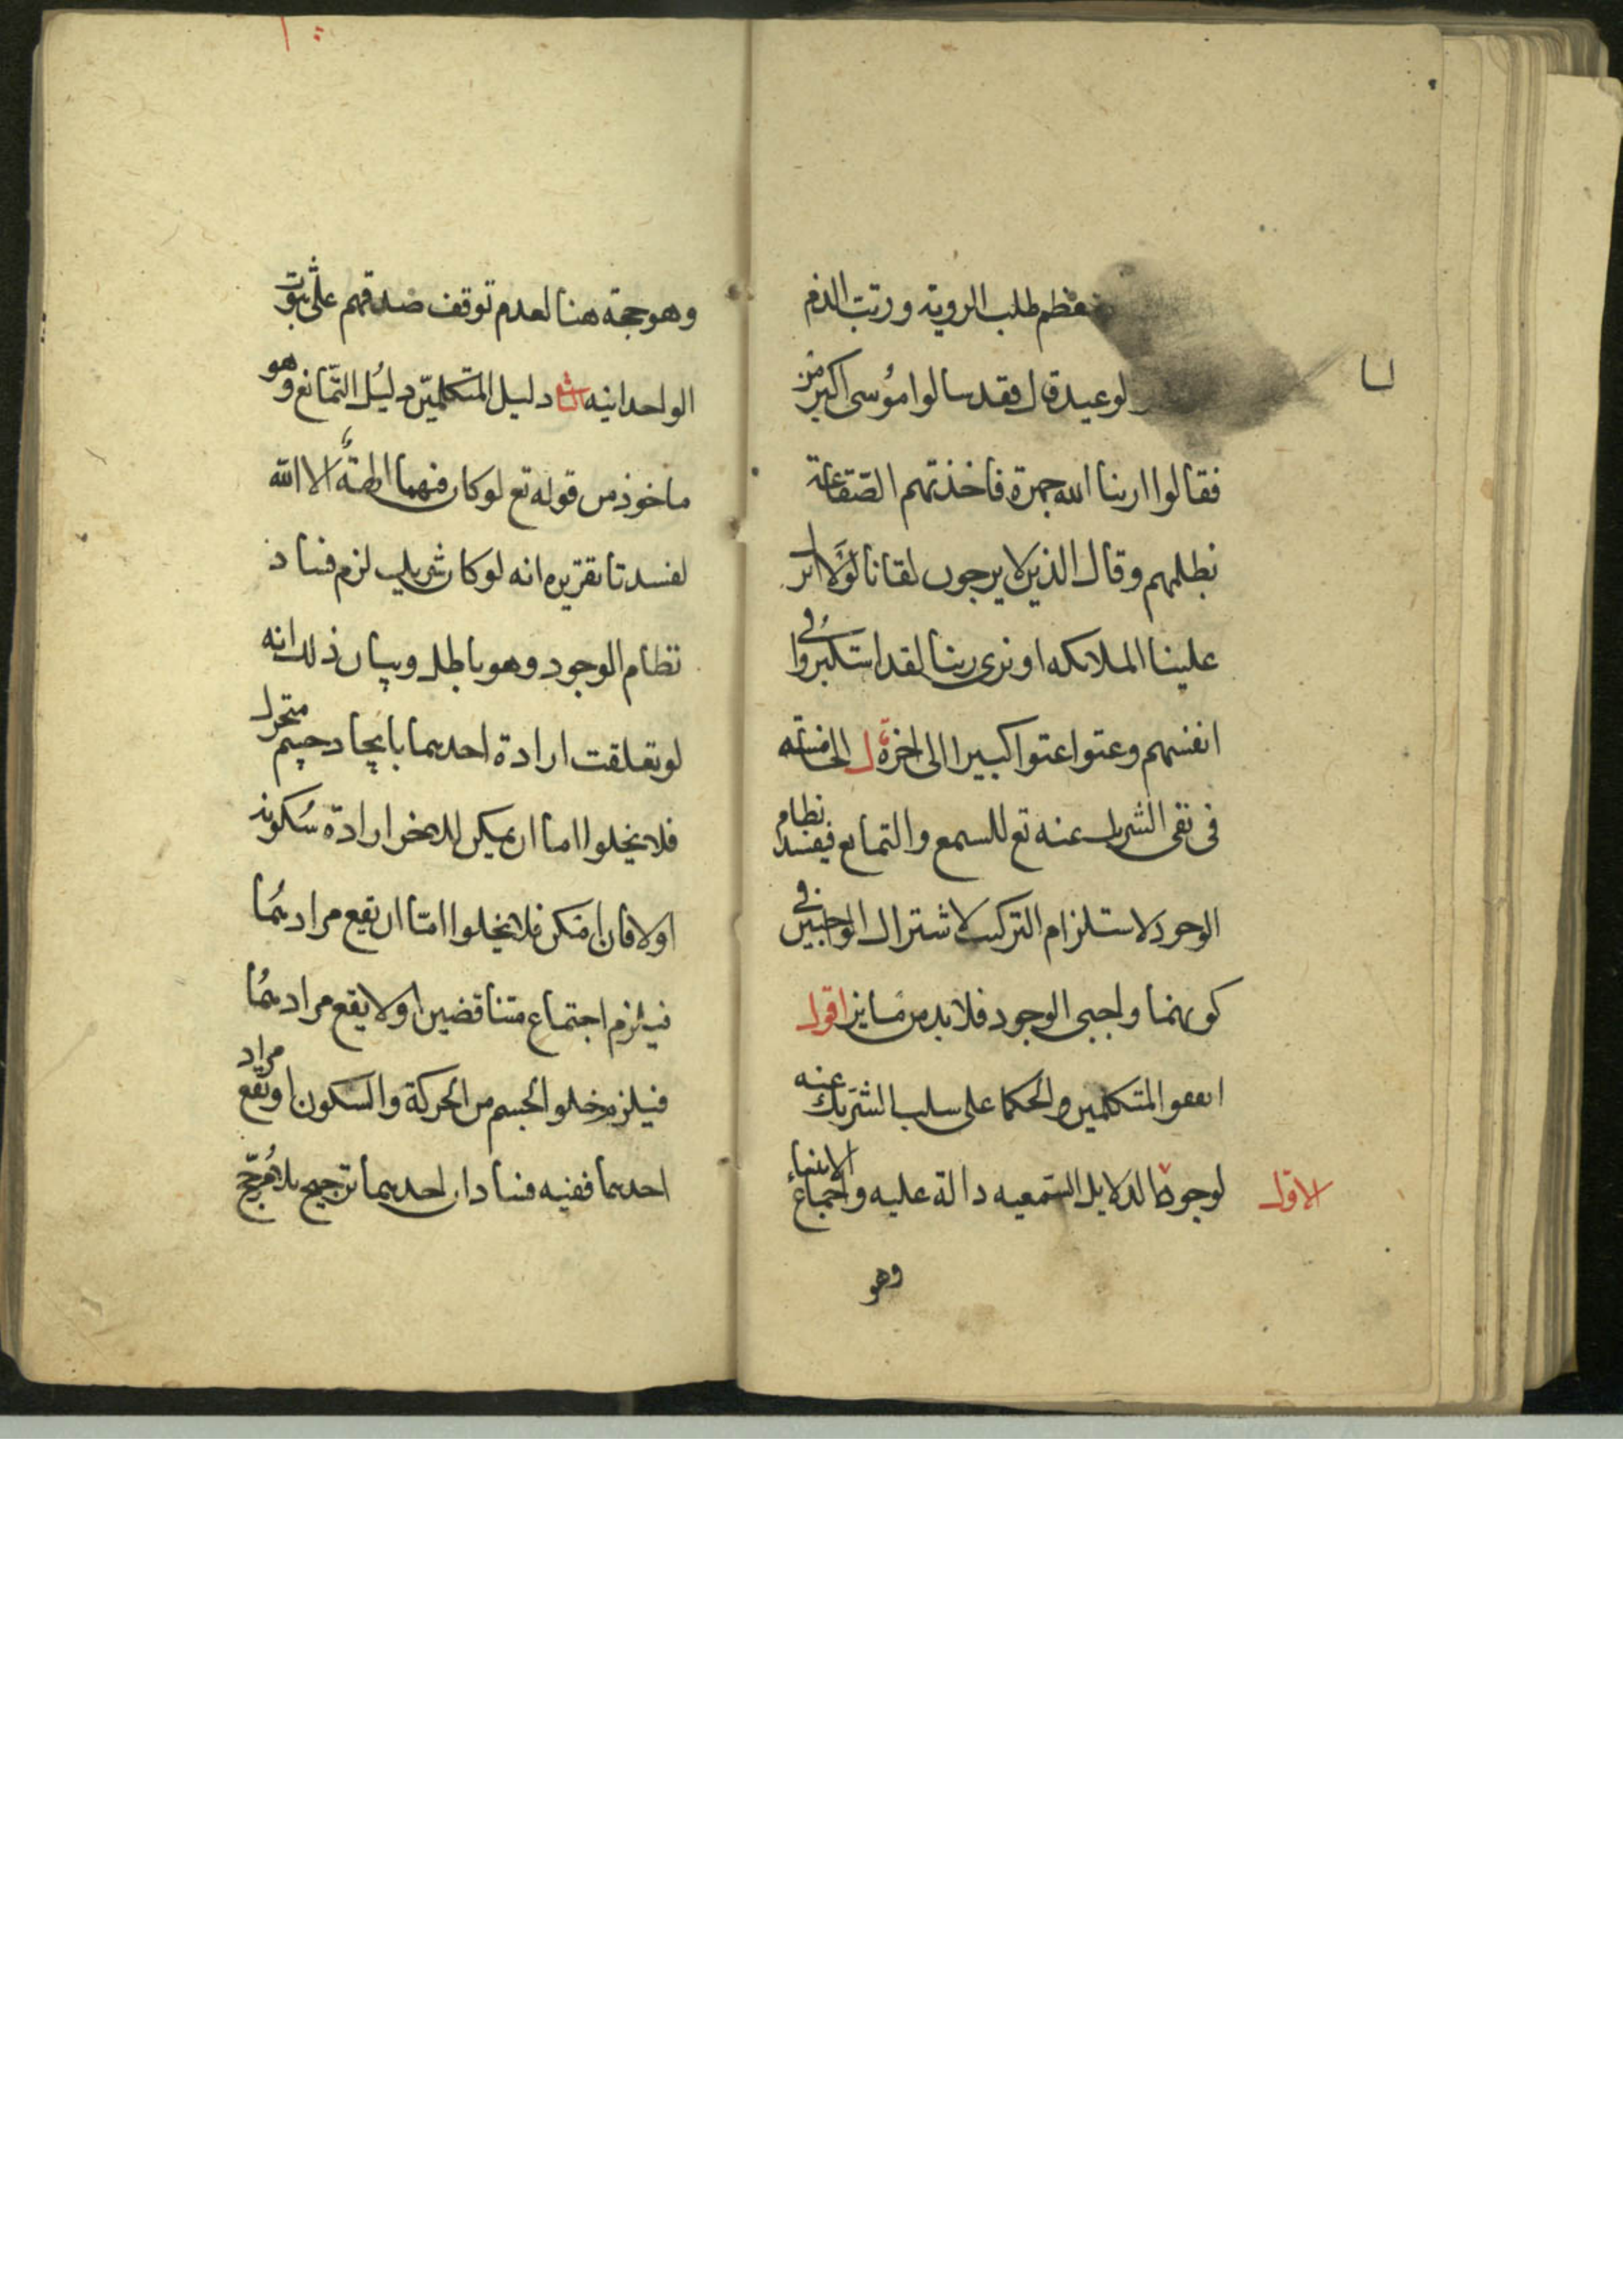 فعظم طلب الروية ورتب الذم
لوعيد قال فقد سالوا موسى اكبر من
فقالوا ارنا الله جهرة فاخذتهم الصّقاعة
بظلمهم وقال الذين لا يرجون لقانا لولا انزل
علينا الملائكه او نرى ربنا لقد استكبروا في
انفسهم وعتوا عتوا كبيرا الى اخره قال الخامسه
في نفى الشريك عنه تع للسمع والتمانع فيفسد نظام
الوجود لاستلزام التركيب لاشتراك الواجبين في
كونهما واجبى الوجود فلا بد من مايز اقول
اتفقوا المتكلمين والحكما على سلب الشريك عنه
الاول
لوجوه الدلايل السّمعيه دالة عليه واجماع الانبياء
وهو
وهو حجة هنا لعدم توقف صدقهم على ثبوت
الواحدانيه الثانى دليل المتكلمين دليل التّمانع وهو
ماخوذ من قوله تع لو كان فيهما الهة الا الله
لفسدتا تقريره انه لو كان شريك لزم فساد
نظام الوجود وهو باطل وبيان ذلك انه
لو تعلقت ارادة احدهما بايجاد جسم متحرك
فلا يخلوا اما ان يمكن للاخر ارادة سكونه
اولا فان امكن فلا يخلوا امّا ان يقع مرادهما
فيلزم اجتماع متناقضين اولا يقع مرادهما
فيلزم خلو الجسم من الحركة والسكون او يقع مراد
احدهما ففيه فسادان احدهما ترجيح بلا مرجّح